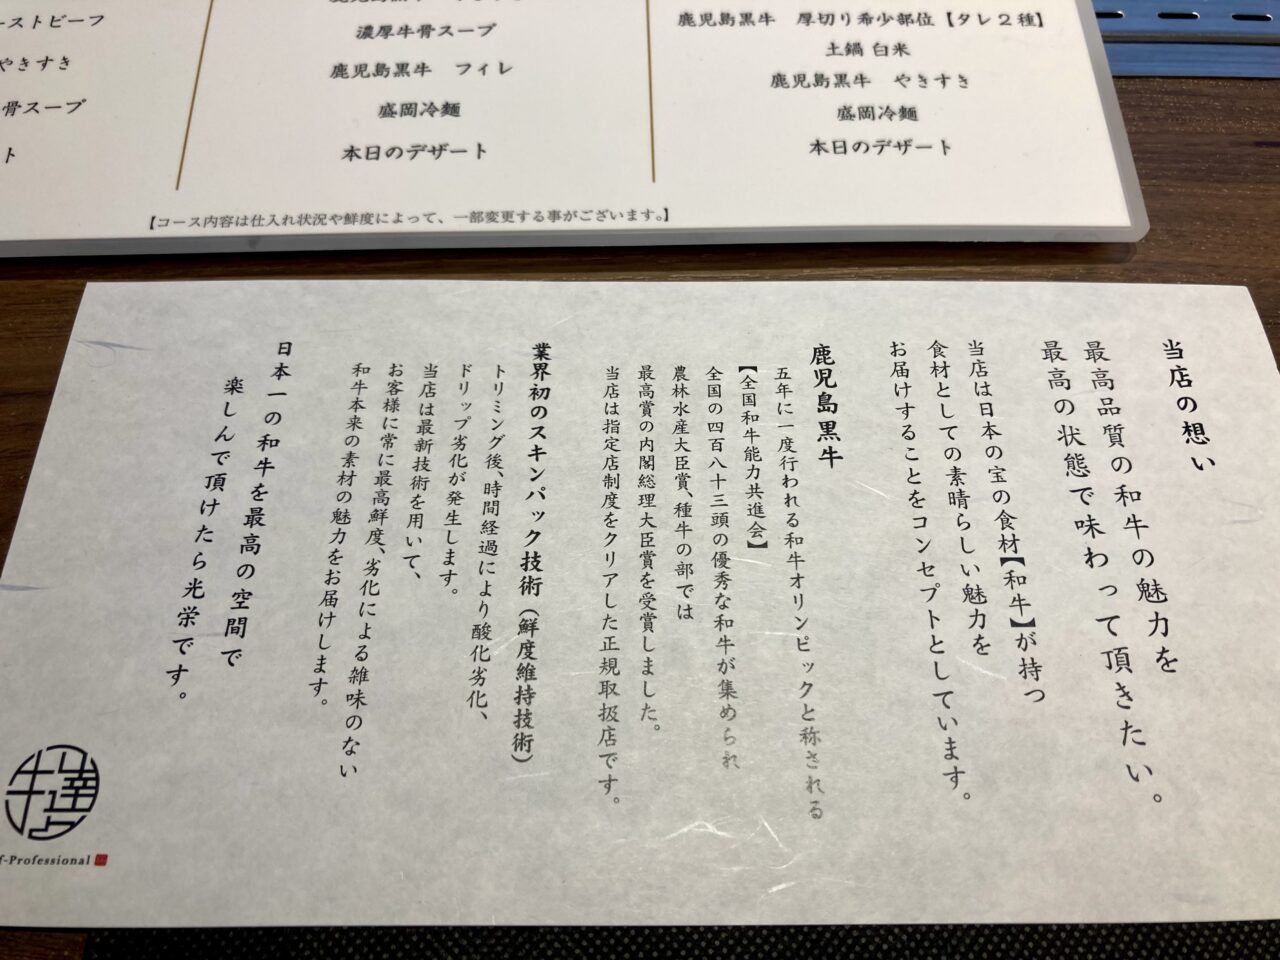 ーストビーフ
やきすき
骨スープ
ト
濃厚牛骨スープ
鹿児島黒牛　フィレ
盛岡冷麺
本日のデザート
鹿児島黒牛　厚切り希少部位【タレ２種】
土鍋 白米
鹿児島黒牛　やきすき
盛岡冷麺
本日のデザート
【コース内容は仕入れ状況や鮮度によって、一部変更する事がございます。】
当店の想い
最高品質の和牛の魅力を
最高の状態で味わって頂きたい。
当店は日本の宝の食材【和牛】が持つ
食材としての素晴らしい魅力を
お届けすることをコンセプトとしています。
鹿児島黒牛
五年に一度行われる和牛オリンピックと称される
【全国和牛能力共進会】
全国の四百八十三頭の優秀な和牛が集められ
農林水産大臣賞、種牛の部では
最高賞の内閣総理大臣賞を受賞しました。
当店は指定店制度をクリアした正規取扱店です。
業界初のスキンパック技術（鮮度維持技術）
トリミング後、時間経過により酸化劣化、
ドリップ劣化が発生します。
当店は最新技術を用いて、
お客様に常に最高鮮度、劣化による雑味のない
和牛本来の素材の魅力をお届けします。
日本一の和牛を最高の空間で
楽しんで頂けたら光栄です。
f-Professional